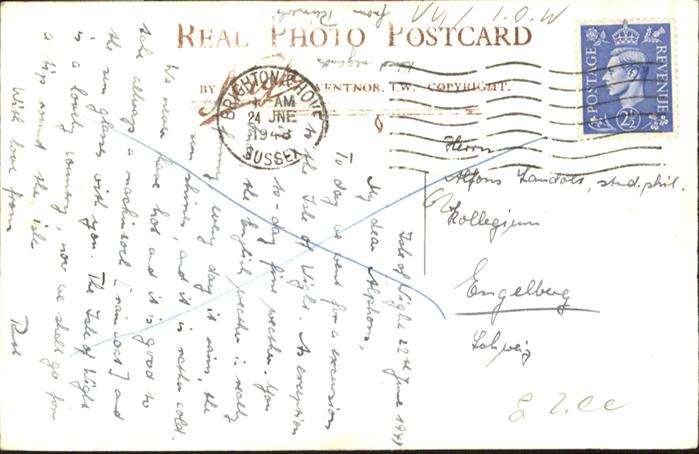 REAL PHOTO POSTCARD
BY VENTNOR, I.W. COPYRIGHT.
BRIGHTON & HOVE
AM
24 JNE
194
SUSSEX
POSTAGE REVENUE
2½
Isle of Wight 22th June 194
My dear Alphons,
To day we went for a excursion
to the Isle of Wight. As exception
to-day fine weather. You
the English weather is really
funny every day it rains, the
sun shines, and it is rather cold.
We never have hot and it is good to
take allways a mackintosh [raincoat] and
the sun glasses with you. The Isle of Wight
is a lovely country, now we shall go for
a trip round the isle
With love from
Kind regards
from
Herrn
Alfons Landolt, stud. phil.
Kollegium
Engelberg
Schweiz